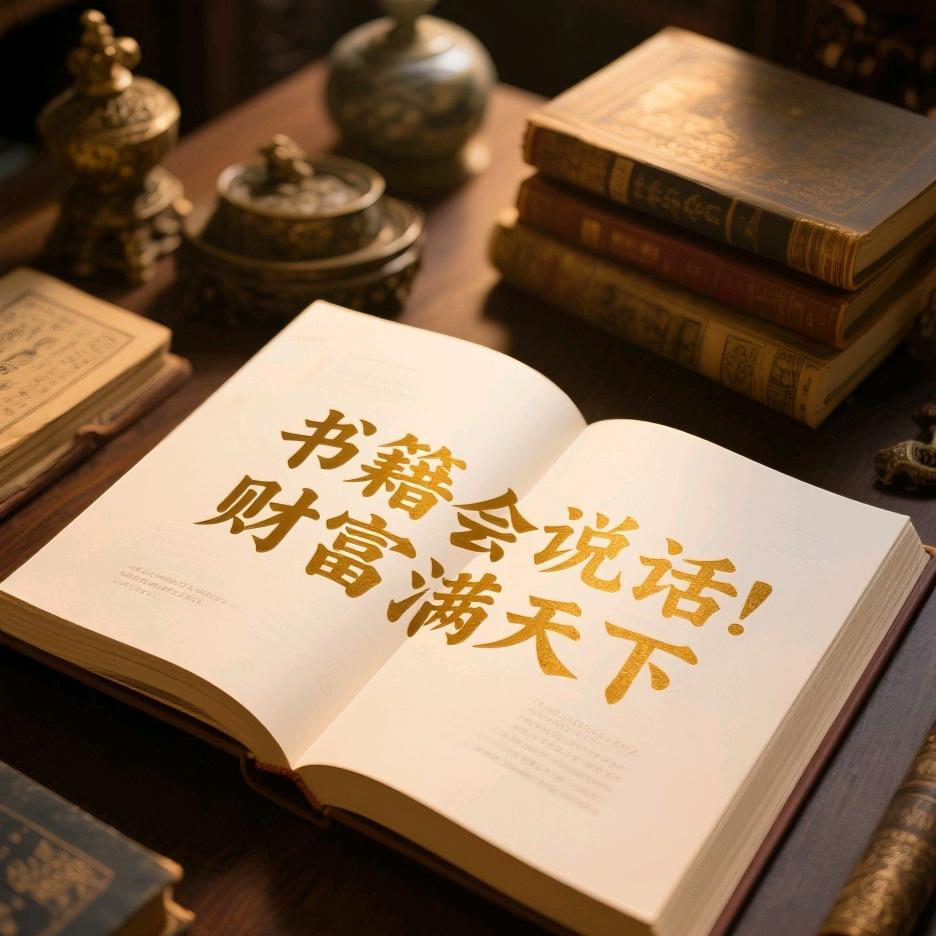 书籍会说话!
财富满天下